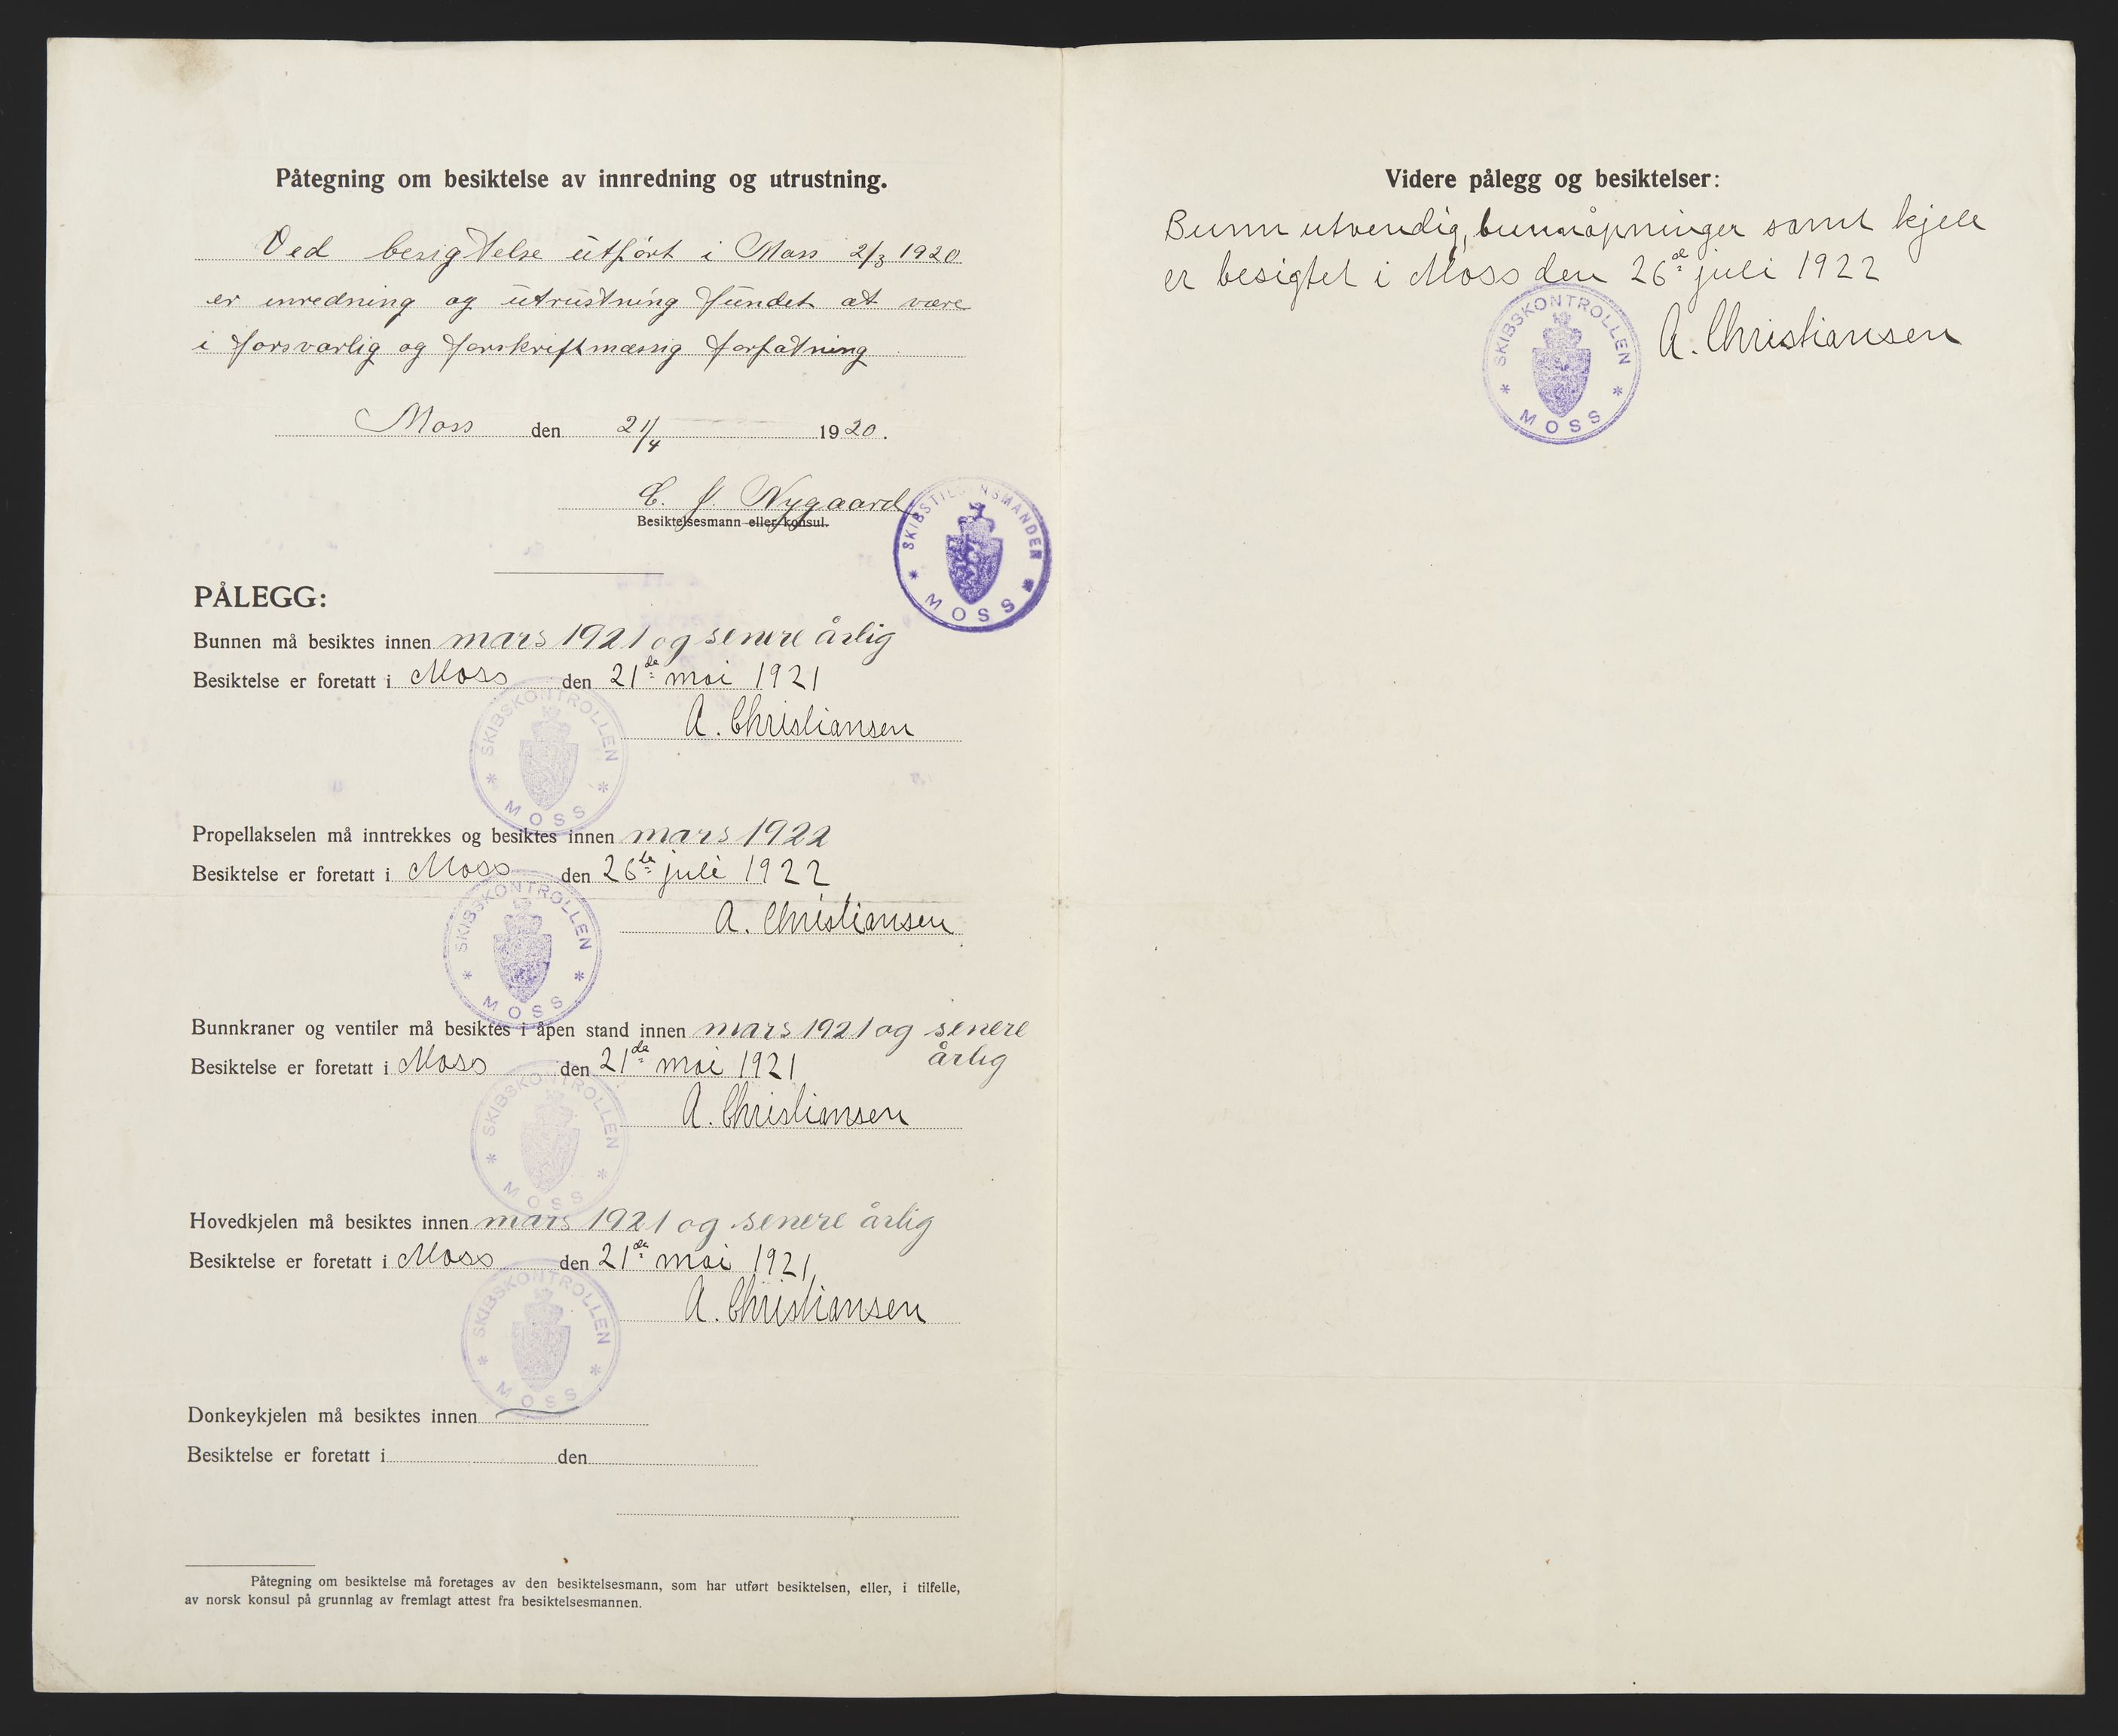 Påtegning om besiktelse av innredning og utrustning.
Ved besigtelse utført i Moss 2/3 1920
er inredning og utrustning fundet at være
i forsvarlig og forskriftmæssig forfatning
Moss den 21/4 1920.
C. J. Nygaard
Besiktelsesmann eller konsul.
SKIBSTILSYNSMANDEN
* MOSS *
PÅLEGG:
Bunnen må besiktes innen mars 1921 og senere årlig
Besiktelse er foretatt i Moss den 21de mai 1921
A. Christiansen
SKIBSKONTROLLEN
* MOSS *
Propellakselen må inntrekkes og besiktes innen mars 1922
Besiktelse er foretatt i Moss den 26de juli 1922
A. Christiansen
SKIBSKONTROLLEN
* MOSS *
Bunnkraner og ventiler må besiktes i åpen stand innen mars 1921 og senere
årlig
Besiktelse er foretatt i Moss den 21de mai 1921
A. Christiansen
SKIBSKONTROLLEN
* MOSS *
Hovedkjelen må besiktes innen mars 1921 og senere årlig
Besiktelse er foretatt i Moss den 21de mai 1921
A. Christiansen
SKIBSKONTROLLEN
* MOSS *
Donkeykjelen må besiktes innen
Besiktelse er foretatt i den
Påtegning om besiktelse må foretages av den besiktelsesmann, som har utført besiktelsen, eller, i tilfelle,
av norsk konsul på grunnlag av fremlagt attest fra besiktelsesmannen.
Videre pålegg og besiktelser:
Bunn utvendig, bunnåpninger samt kjele
er besigtet i Moss den 26de juli 1922
A. Christiansen
SKIBSKONTROLLEN
* MOSS *